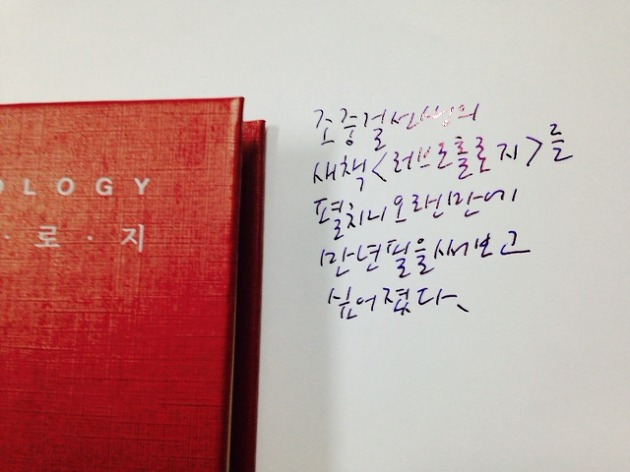 OLOGY
·로·지
조중걸선생님의
새책<러브온톨로지>를
펼치니오랜만에
만년필을써보고
싶어졌다.